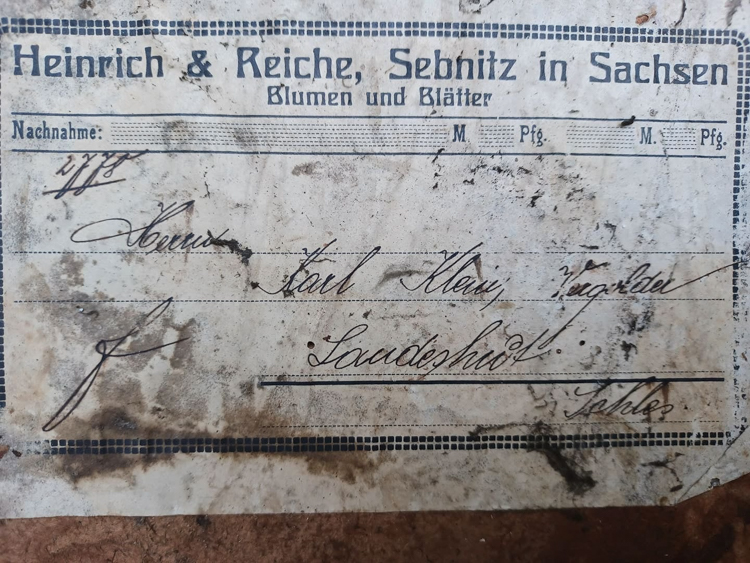 Heinrich & Reiche, Sebnitz in Sachsen
Blumen und Blätter
Nachnahme: M Pfg. M. Pfg.
2778
Herrn
Karl Klein, Vergolder
f
Landeshut
Schles.